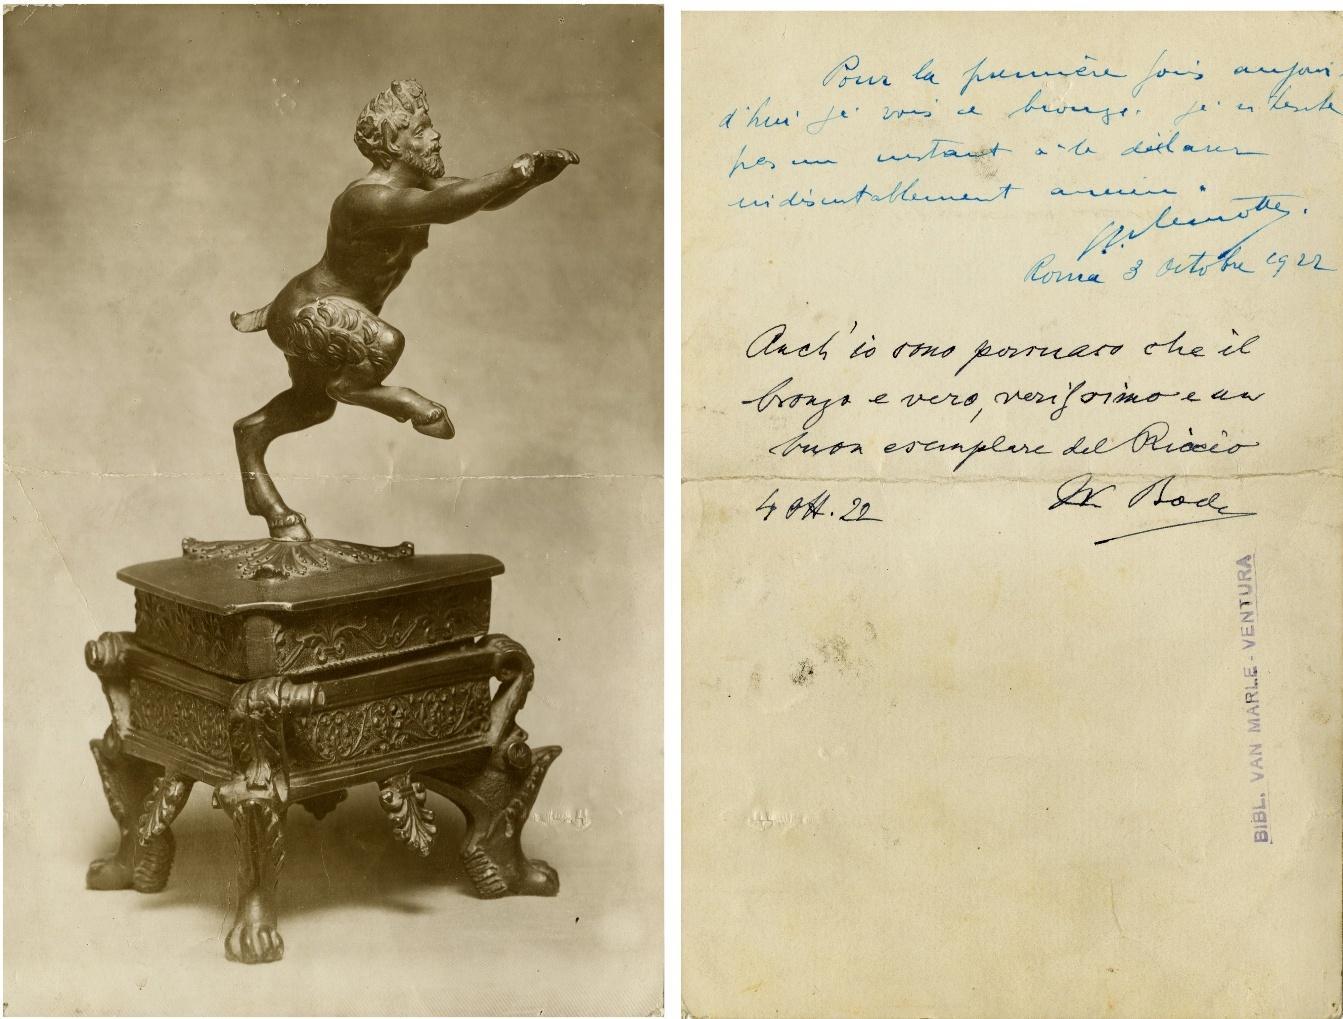 Pour la première fois aujour-
d'hui je vois ce bronze. je n'hesite
pas un instant à le déclarer
indiscutablement ancien.
Roma 3 Octobre 1922
Anch'io sono persuaso che il
bronzo e vero, verissimo e un
buon esemplare del Riccio
4 Ott. 22 W Bode
BIBL. VAN MARLE - VENTURA